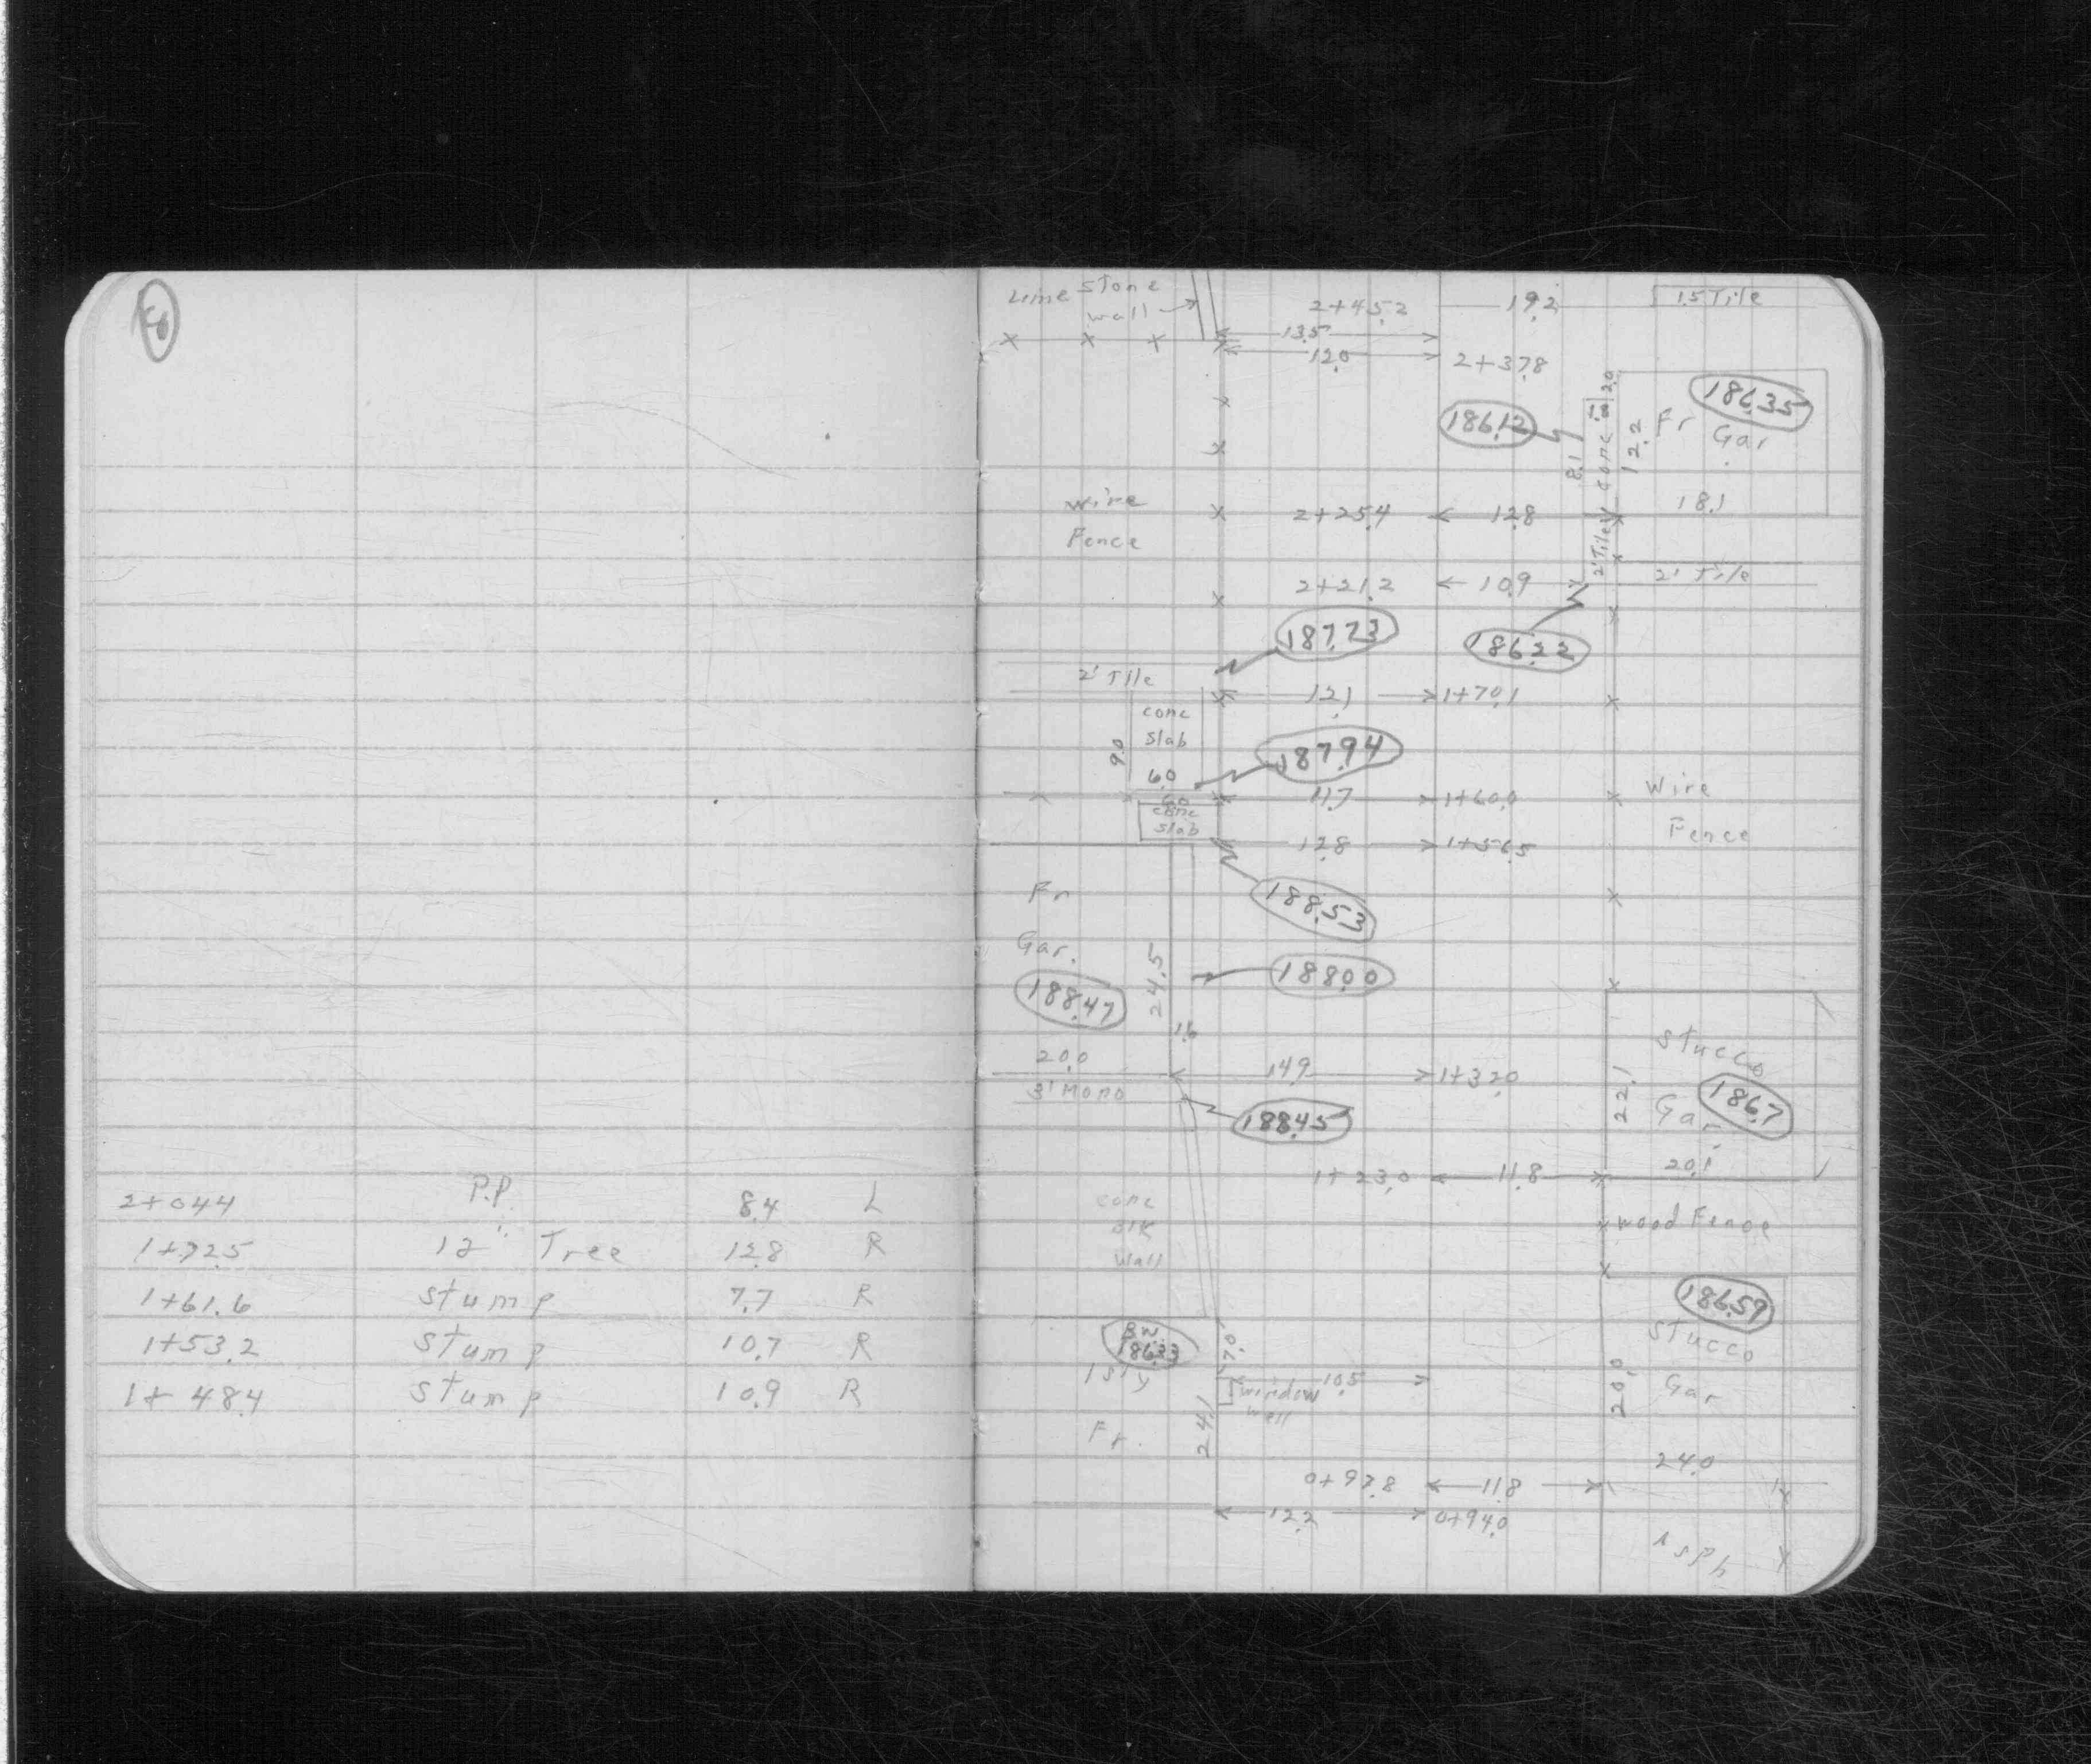 2+04.4 P.P. 8.4 L
1+72.5 12" Tree 12.8 R
1+61.6 stump 7.7 R
1+53.2 stump 10.7 R
1+48.4 stump 10.9 R
Lime stone wall 2+45.2 19.2 1.5 Tile
13.5
12.0 2+37.8
186.12 8.1 conc 2.0 12.2 Fr Gar 186.35
18.1
wire Fence 2+25.4 12.8 2' Tile
2+21.2 10.9 2' Tile
187.73 186.22
2' Tile 12.1 1+70.1
conc slab
9.0 6.0 187.94
11.7 1+60.0 Wire Fence
conc slab
12.8 1+56.5
188.53
Fr Gar. 24.5 188.00
188.47
1.6
20.0 14.9 1+32.0 Stucco Gar 22.1 186.7
3' Mono
188.45
1+23.0 11.8 20.1
conc Blk wall wood Fence
186.59
B.W. 186.33 7.0 Stucco Gar 20.0
1 sty Fr. 24.1 window well 10.5
24.0
0+97.8 11.8
12.2 0+94.0
Asph